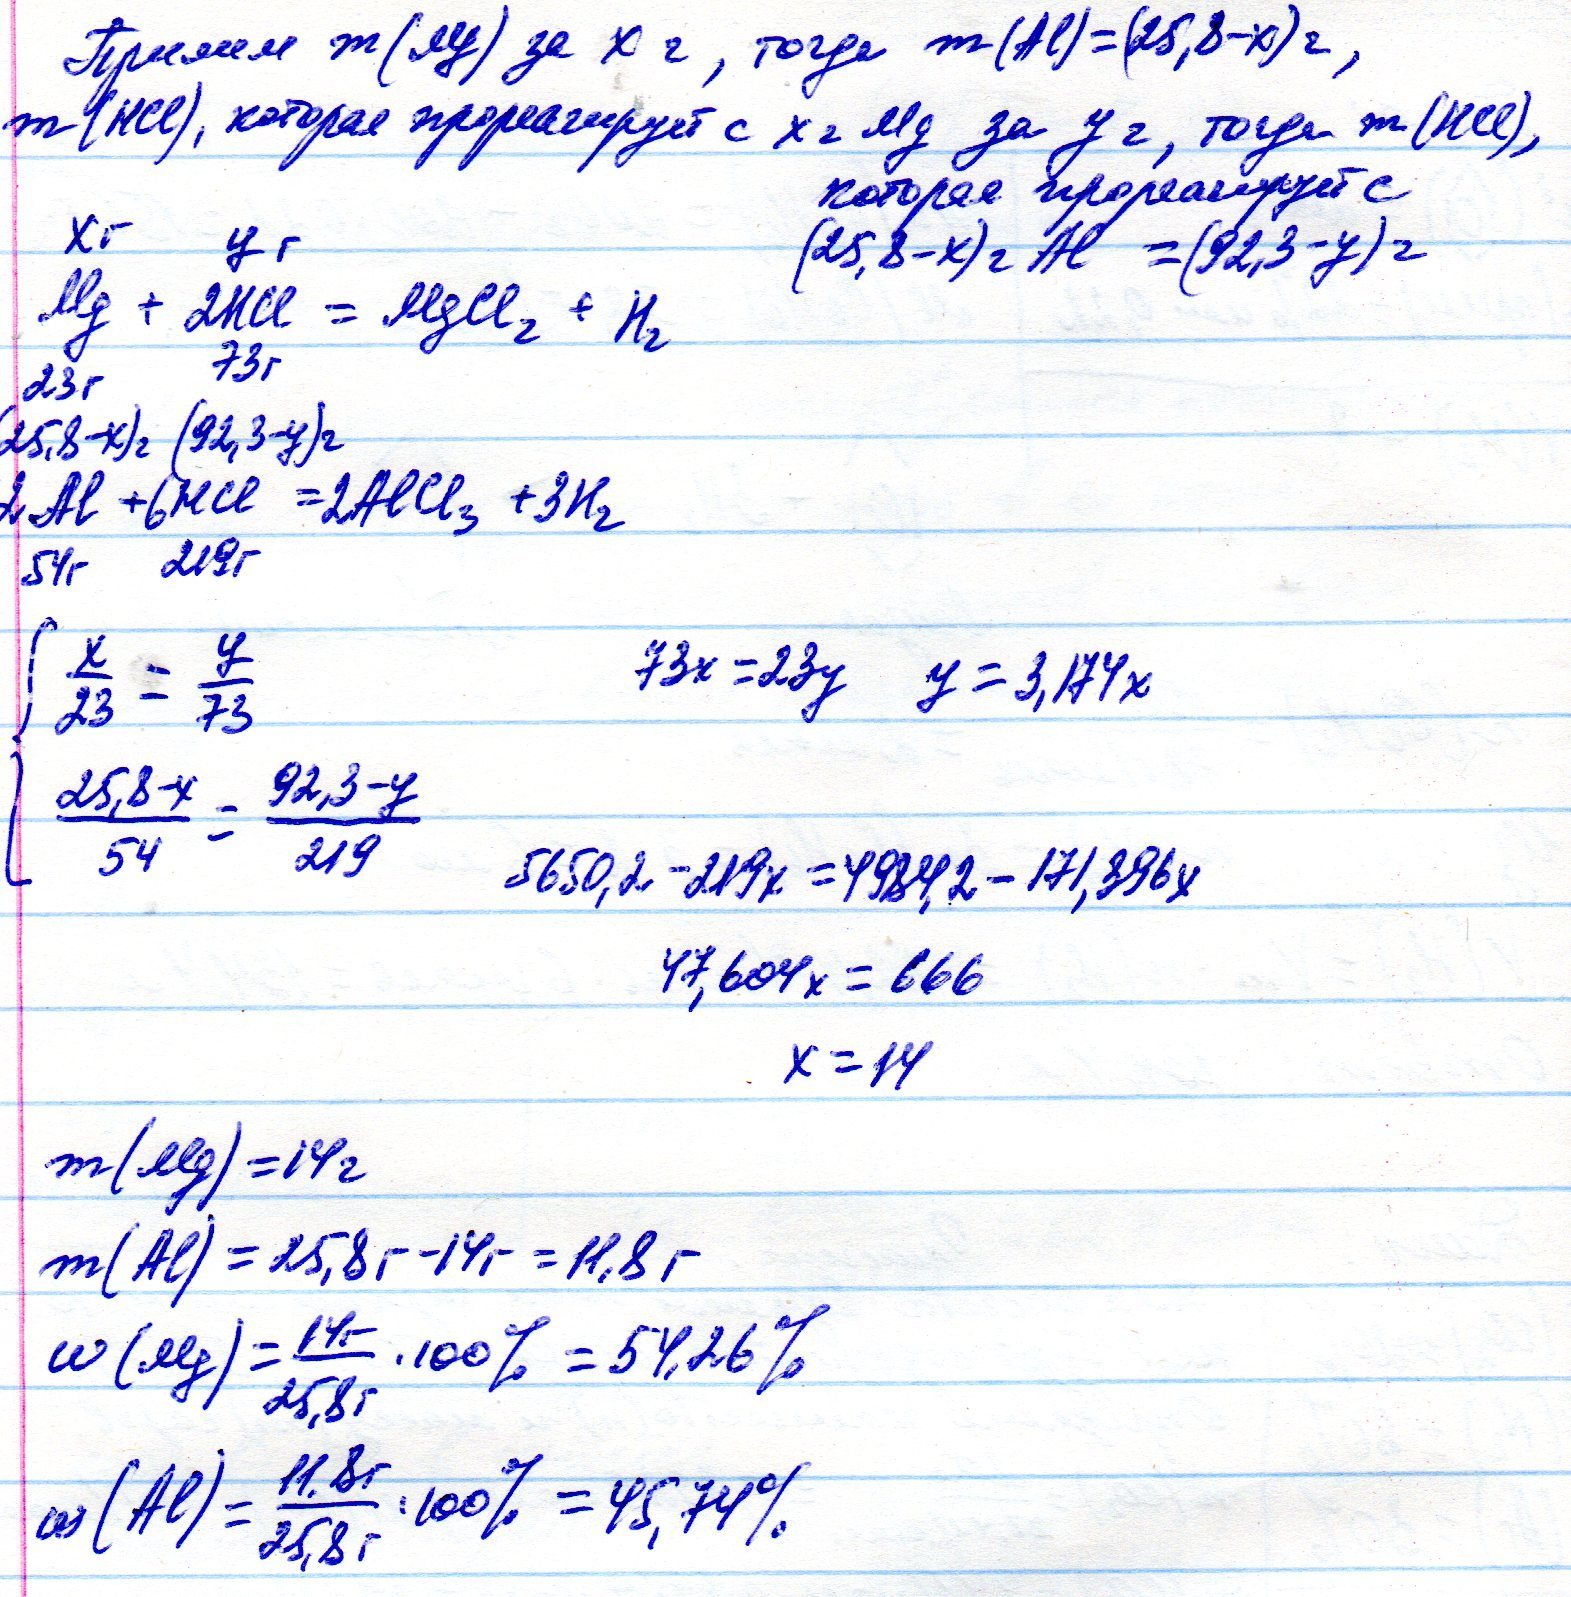 Примем m(Mg) за x г, тогда m(Al)=(25,8-x)г,
m(HCl), которая прореагирует с x г Mg за y г, тогда m(HCl),
которая прореагирует с
(25,8-x)г Al =(92,3-y)г
xг yг
Mg + 2HCl = MgCl₂ + H₂
23г 73г
(25,8-x)г (92,3-y)г
2Al +6HCl =2AlCl₃ +3H₂
54г 219г
x/23 = y/73 73x=23y y=3,174x
(25,8-x)/54 = (92,3-y)/219
5650,2-219x=4984,2-171,396x
47,604x=666
x=14
m(Mg)=14г
m(Al)=25,8г-14г=11,8г
w(Mg)=14г/25,8г·100%=54,26%
w(Al)=11,8г/25,8г·100%=45,74%